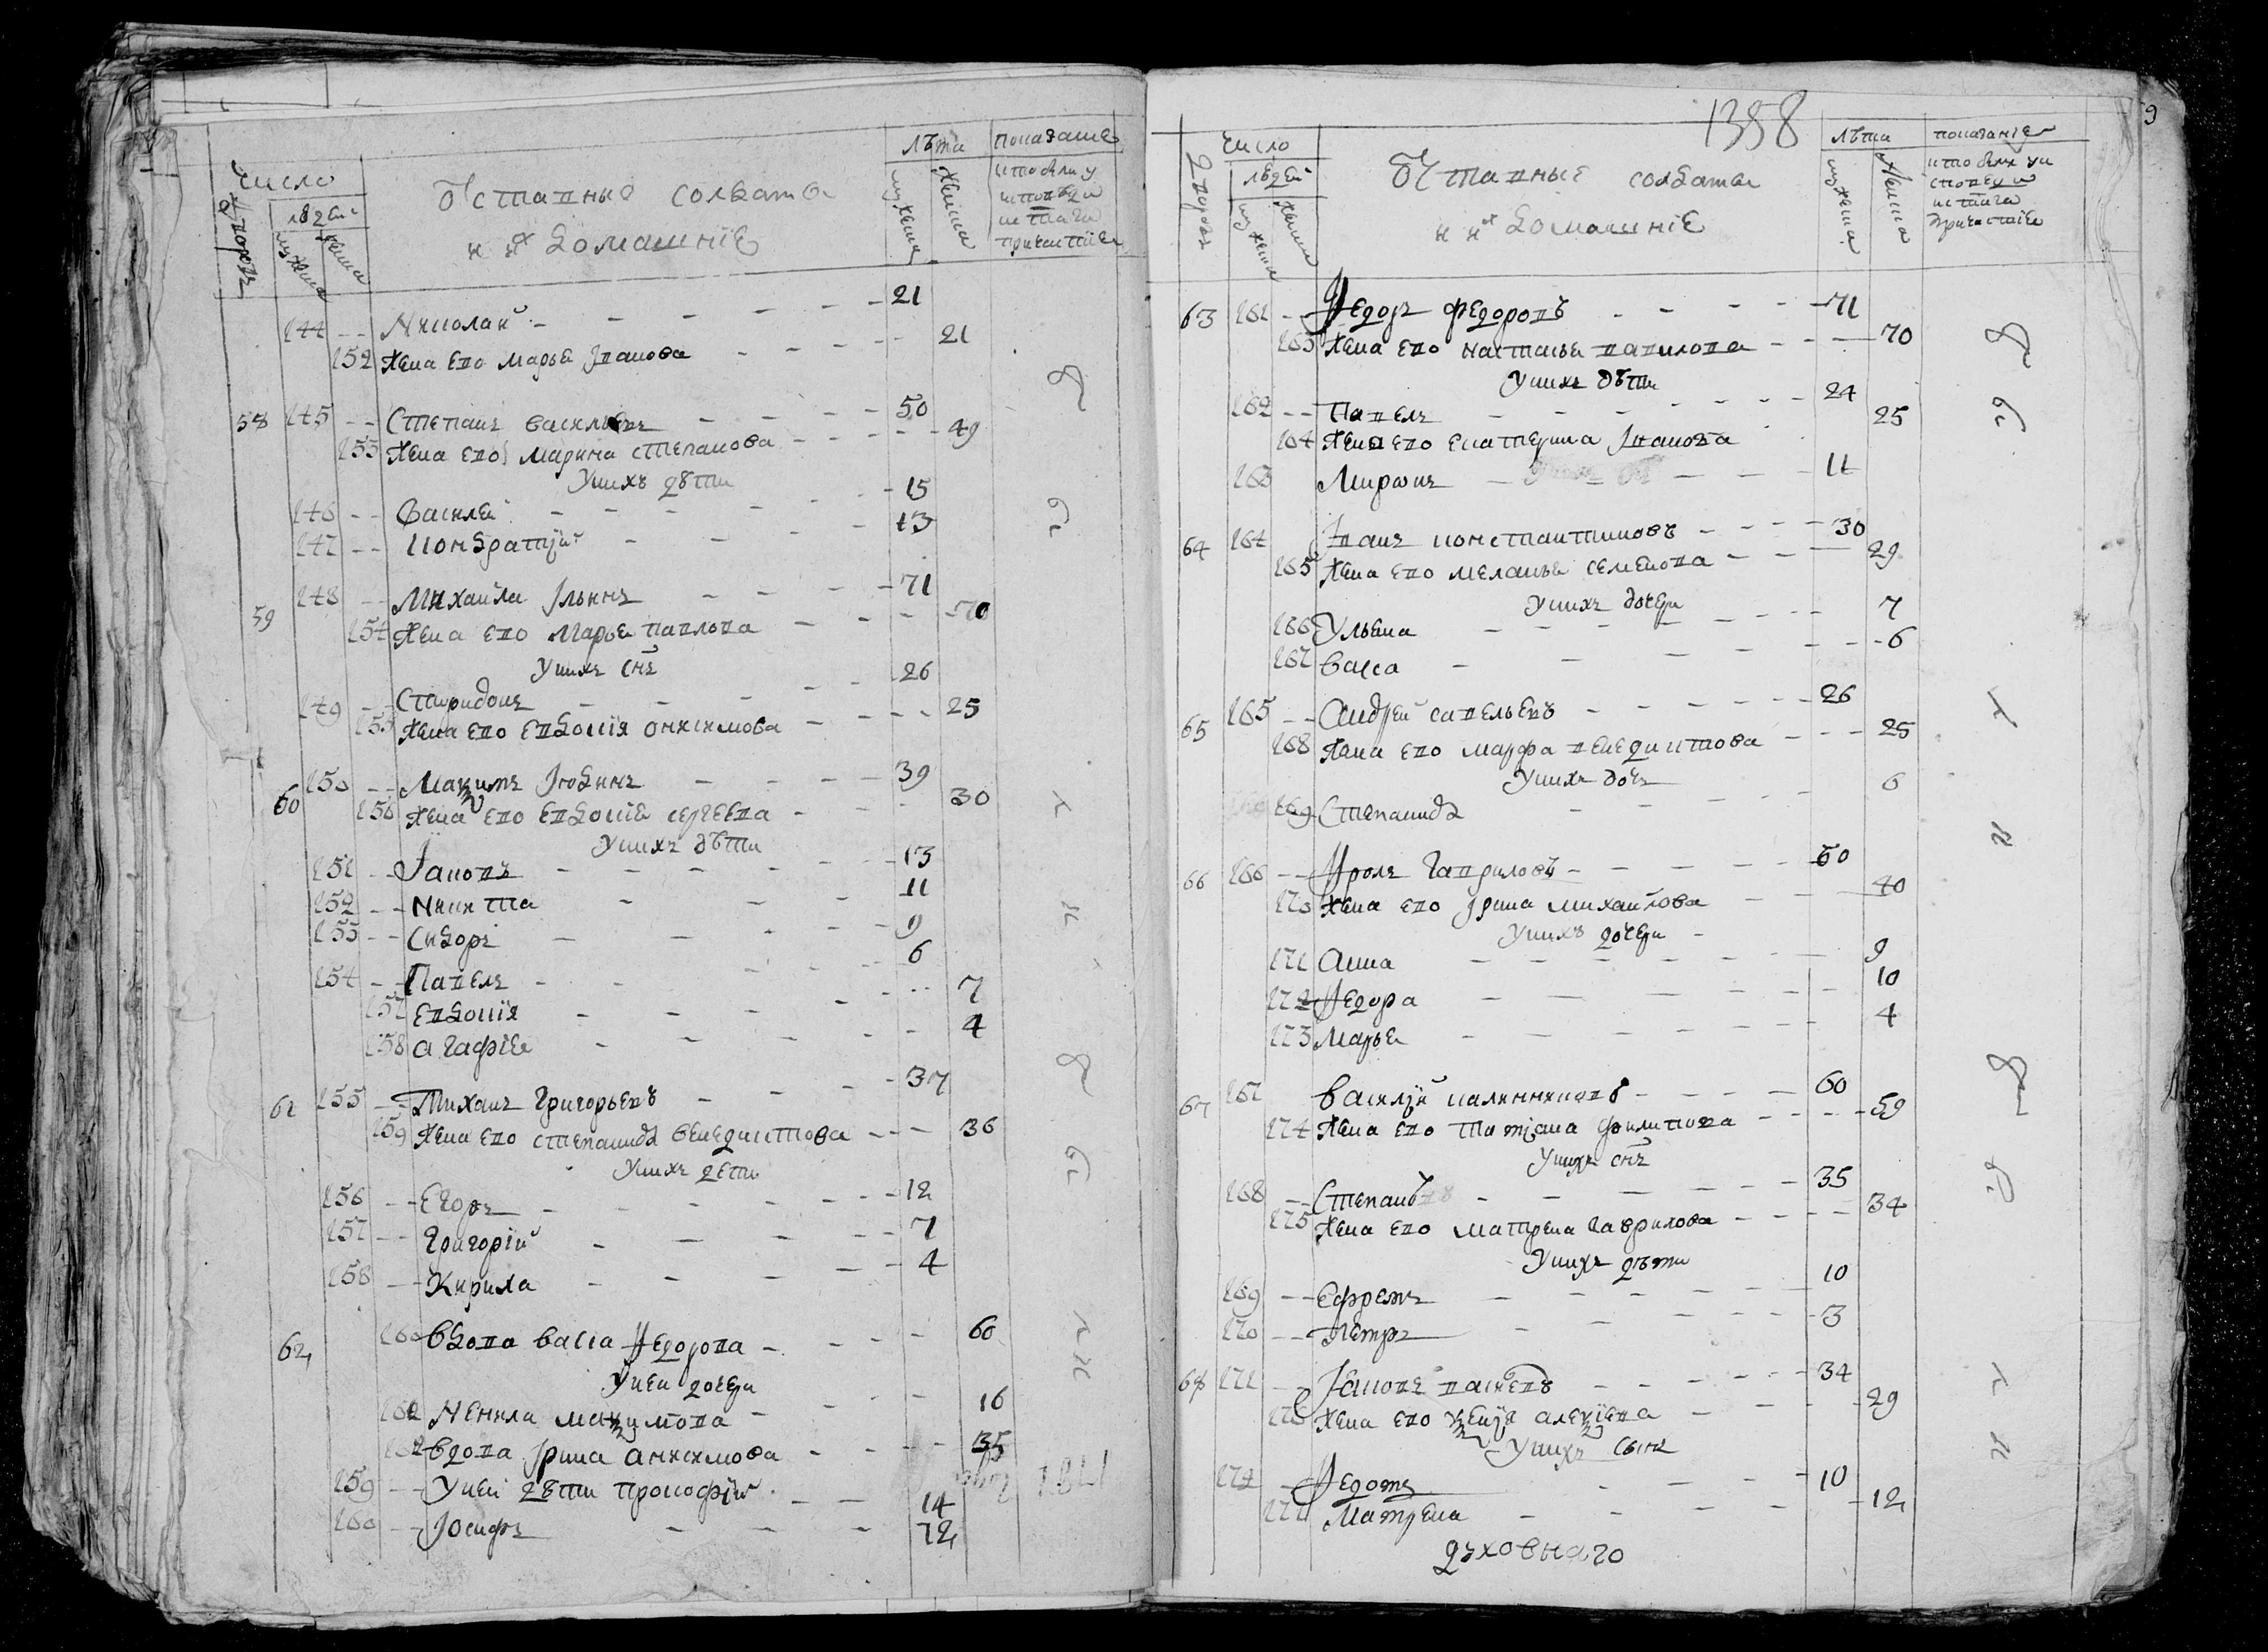 число
дворовъ
людей
мужеска
женска
Отставные солдаты
и их домашние
лѣта
мужеска
женска
показание
кто были у
исповеди
и с таго
причастия
144 -- Николай - - - - - 21
152 Жена ево Марья Іванова - - - - 21
58 145 -- Степанъ Васильевъ - - - 50
153 Жена ево Марина Степанова - - - - 49
У нихъ дѣти
146 -- Василей - - - - - 15
147 -- Кондратїй - - - - 13
59 148 -- Михайла Ільинъ - - - 71
154 Жена ево Марья Павлова - - - - 70
У нихъ снъ
149 -- Спиридонъ - - - - 26
155 Жена ево Евдокія Онисимова - - - - 25
60 150 -- Максимъ Іюдинъ - - - - 39
156 Жена ево Евдокіе Сергеева - - - 30
У нихъ дѣти
151 -- Іаковъ - - - - - 13
152 -- Никита - - - 11
153 -- Сидоръ - - - - 9
154 -- Павелъ - - - - 6
157 Евдокія - - - - 7
158 Агафіе - - - - - 4
61 155 -- Тиханъ Григорьевъ - - - 37
159 Жена ево Степанида Венедиктова - - - 36
У нихъ дети
156 -- Егоръ - - - - 12
157 -- Григорій - - - - 7
158 -- Кирила - - - - 4
62 160 Вдова Васса Федорова - - - 60
У неи дочери
161 Ненила Максимова - - - 16
162 Вдова Ірина Анисимова - - - - 35
159 -- У ней дѣти Прокофїй - - 14
160 -- Іосифъ - - - 12
1358
9
число
дворовъ
людей
мужеска
женска
Отставные солдаты
и их домашние
лѣта
мужеска
женска
показание
кто были у и
споведи и
и с таго
причастие
63 161 -- Федоръ Федоровъ - - - - 71
163 Жена ево Настасье Павлова - - - 70
У нихъ дѣти
162 -- Павелъ - - - - - 24
164 Жена ево Екатерина Іванова 25
163 Миронъ - - - - 11
64 164 Іванъ Константиновъ - - - - 30
165 Жена ево Меланье Семенова - - - 29
У нихъ дочери
166 Ульена - - - - - 7
167 Васса - - - - - 6
65 165 -- Андрей Савельевъ - - - - - 26
168 Жена ево Марфа Венедиктова - - - 25
У нихъ дочь
169 Степанида - - - - 6
66 166 -- Фролъ Гавриловъ - - - - 50
170 Жена ево Ірина Михайлова - - 40
У нихъ дочери
171 Анна - - - - - 9
172 Федора - - - - - 10
173 Марье - - - - - 4
67 167 Василїй Калинниковъ - - - 60
174 Жена ево Татїана Филипова - - - - 59
У нихъ снъ
168 -- Степанъ - - - - - 35
175 Жена ево Матрена Гаврилова - - - - 34
У нихъ дѣти
169 -- Ефремъ - - - - - 10
170 -- Петръ - - - - 3
68 171 -- Іаковъ - - - - - 34
176 Жена ево Ксенїе Алексїева - - - 29
У нихъ сынъ
172 -- Федотъ - - - 10
177 Матрена - - - - 12
духовнаго